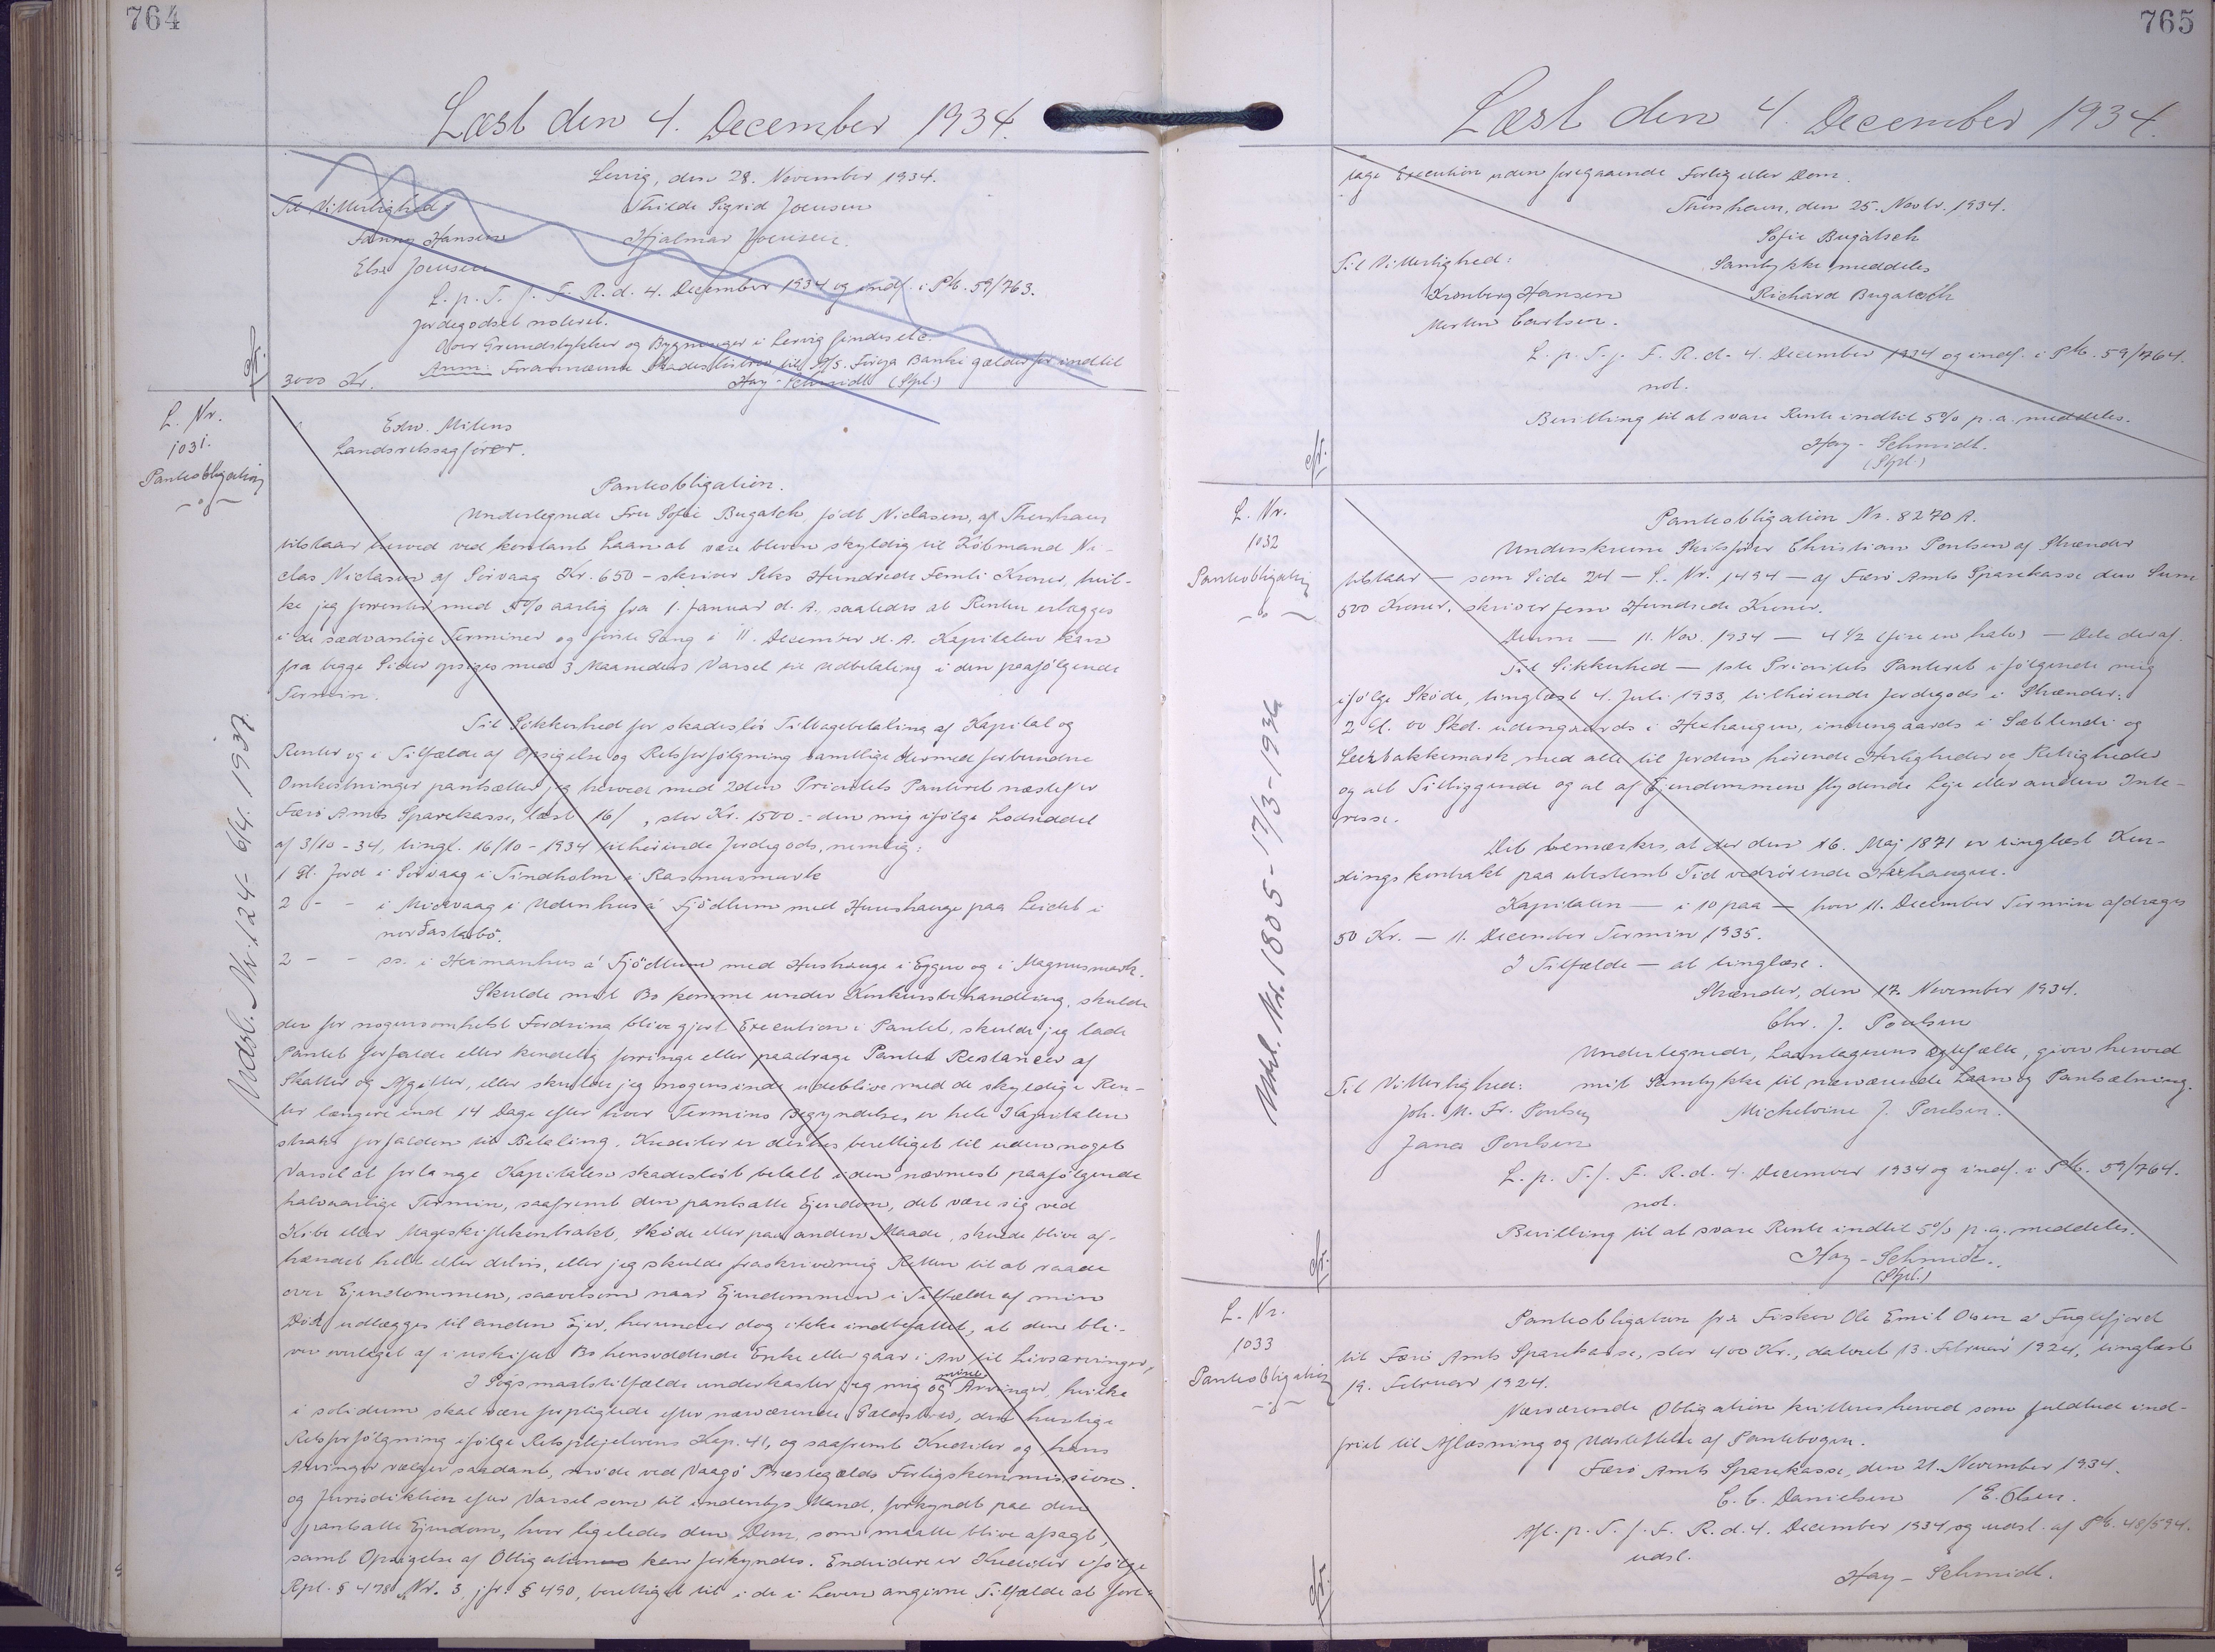 764
Læst den 4. December 1934.
Lervig, den 28. November 1934.
Til Vitterlighed: Thilda Sigrid Joensen
Fanny Hansen Hjalmar Joensen.
Else Joensen
L. p. T. f. F. R. d. 4. December 1934 og indf. i Pb. 59/763.
Jordegodset noteret.
Over Grundstykker og Bygninger i Lervig findes etc.
Anm: Forannævnte Skadesløsbrev til A/S. Føroya Banki gælder for indtil
3000 Kr. Hay-Schmidt (Stpl.)
cfr.
L. Nr.
1031.
Pantobligation
Edw. Mitens
Landsretssagfører.
Pantobligation.
Undertegnede Fru Sofie Bugatsch, født Niclasen, af Thorshavn
tilstaar herved ved kontant Laan at være bleven skyldig til Købmand Ni-
clas Niclasen af Sørvaag Kr. 650 - skriver Seks Hundrede Femti Kroner, hvil-
ke jeg forrenter med 5% aarlig fra 1. Januar d. A. saaledes at Renten erlægges
i de sædvanlige Terminer og første Gang i 11. December d. A. Kapitalen kan
fra begge Sider opsiges med 3 Maaneders Varsel til Udbetaling i den paafølgende
Termin.
Til Sikkerhed for skadesløs Tilbagebetaling af Kapital og
Renter og i Tilfælde af Opsigelse og Retsforfølgning samtlige dermed forbundne
Omkostninger pantsætter jeg herved med 2den Prioritets Panteret næstefter
Færø Amts Sparekasse, læst 16/ , stor Kr. 1500.- den mig ifølge Lodseddel
af 3/10-34, tingl. 16/10-1934 tilhørende Jordegods, nemlig:
1 Gl. Jord i Sørvaag i Tindholm i Rasmusmark
2 - - i Midvaag i Udenhus á Fjødlum med Huushauge paa Leidit i
norðastabø.
2 - - ss. i Heimanhus á Fjødlum med Hushauge i Eggun og i Magnusmark.
Skulde mit Bo komme under Konkursbehandling, skulde
der for nogensomhelst Fordring blive gjort Execution i Pantet, skulde jeg lade
Pantet forfalde eller kendelig forringe eller paadrage Pantet Restancer af
Skatter og Afgifter, eller skulde jeg nogensinde udeblive med de skyldige Ren-
ter længere end 14 Dage efter hver Termins Begyndelse, er hele Kapitalen
straks forfalden til Betaling. Kreditor er derhos berettiget til uden noget
Varsel at forlange Kapitalen skadesløst betalt i den nærmest paafølgende
halvaarlige Termin, saafremt den pantsatte Ejendom, det være sig ved
Købe eller Mageskiftekontrakt, Skøde eller paa anden Maade, skulde blive af-
hændet helt eller delvis, eller jeg skulde fraskrive mig Retten til at raade
over Ejendommen, saavelsom naar Ejendommen i Tilfælde af min
Død udlægges til anden Ejer, herunder dog ikke indbefattet, at den bli-
ver overtaget af i uskiftet Bo hensiddende Enke eller gaar i Arv til Livsarvinger,
I Søgsmaalstilfælde underkaster jeg mig og mine Arvinger, hvilke
i solidum skal være forpligtede efter nærværende Gældsbrev, den hurtige
Retsforfølgning ifølge Retsplejelovens Kap. 41, og saafremt Kreditor og hans
Arvinger vælger saadant, møde ved Vaagø Præstegælds Forligskommission.
og Jurisdiktion efter Varsel som til indenbys Mand, forkyndt paa den
pantsatte Ejendom, hvor ligeledes den Dom, som maatte blive afsagt,
samt Opsigelse af Obligationen kan forkyndes. Endvidere er Kreditor ifølge
Rpl. § 478 Nr. 3, jfr. § 490, berettiget til i de i Loven angivne Tilfælde at fore-
Udsl. Nr. 124 - 6/4. 1937.
765
Læst den 4. December 1934.
tage Execution uden foregaaende Forlig eller Dom.
Thorshavn, den 25. Novbr. 1934.
Sofie Bugatsch
Til Vitterlighed: Samtykke meddeles
Kronberg Hansen Richard Bugatsch
Morten Carlsen.
L. p. T. f. F. R. d. 4. December 1934 og indf. i Pb. 59/764.
not.
Bevilling til at svare Rente indtil 5% p. a. meddeles.
Hay-Schmidt.
(Stpl.)
cfr.
L. Nr.
1032
Pantobligation
Pantobligation Nr. 8270 A.
Underskrevne Skibsfører Christian Poulsen af Strænder
tilstaar — som Side 24 — L. Nr. 1494 — af Færø Amts Sparekasse den Sum
500 Kroner, skriver fem Hundrede Kroner.
Denne — 11. Nov. 1934 — 4 1/2 (fire en halv) — Dele deraf.
Til Sikkerhed — 1ste Prioritets Panteret i følgende mig
ifølge Skøde, tinglæst 4. Juli 1933, tilhørende Jordegods i Strænder:
2 Gl. 00 Skd. udengaards i Hechaugen, indengaards i Sæblendi og
Leirbakkemark med alle til Jorden hørende Herligheder og Rettigheder
og alt Tilliggende og al af Ejendommen flydende Leje eller anden Inte-
resse.
Det bemærkes, at der den 16. Maj 1871 er tinglæst Kon-
dingskontrakt paa ubestemt Tid vedrørende Hechaugen.
Kapitalen — i 10 paa — hver 11. December Termin afdrages
50 Kr. — 11. December Termin 1935.
I Tilfælde — at tinglæse.
Strænder, den 17. November 1934.
Chr. J. Poulsen
Undertegnede, Laantagerens Ægtefælle, giver herved
Til Vitterlighed: mit Samtykke til nærværende Laan og Pantsætning.
Joh. M. Fr. Poulsen Michelvine J. Poulsen.
Jana Poulsen
L. p. T. f. F. R. d. 4. December 1934 og indf. i Pb. 59/764.
not.
Bevilling til at svare Rente indtil 5% p. a. meddeles.
Hay-Schmidt.
(Stpl.)
Udsl. Nr. 1805 - 17/3-1936
cfr.
L. Nr.
1033
Pantobligation
Pantobligation fra Fisker Ole Emil Olsen af Fuglefjord
til Færø Amts Sparekasse, stor 400 Kr., dateret 13. Februar 1924, tinglæst
19. Februar 1924.
Nærværende Obligation kvitteres herved som fuldtud ind-
friet til Aflæsning og Udslettelse af Pantebogen.
Færø Amts Sparekasse, den 21. November 1934.
C. C. Danielsen / E. Olsen.
Afl. p. T. f. F. R. d. 4. December 1934 og udsl. af Pb. 48/594.
udsl.
Hay-Schmidt.
cfr.